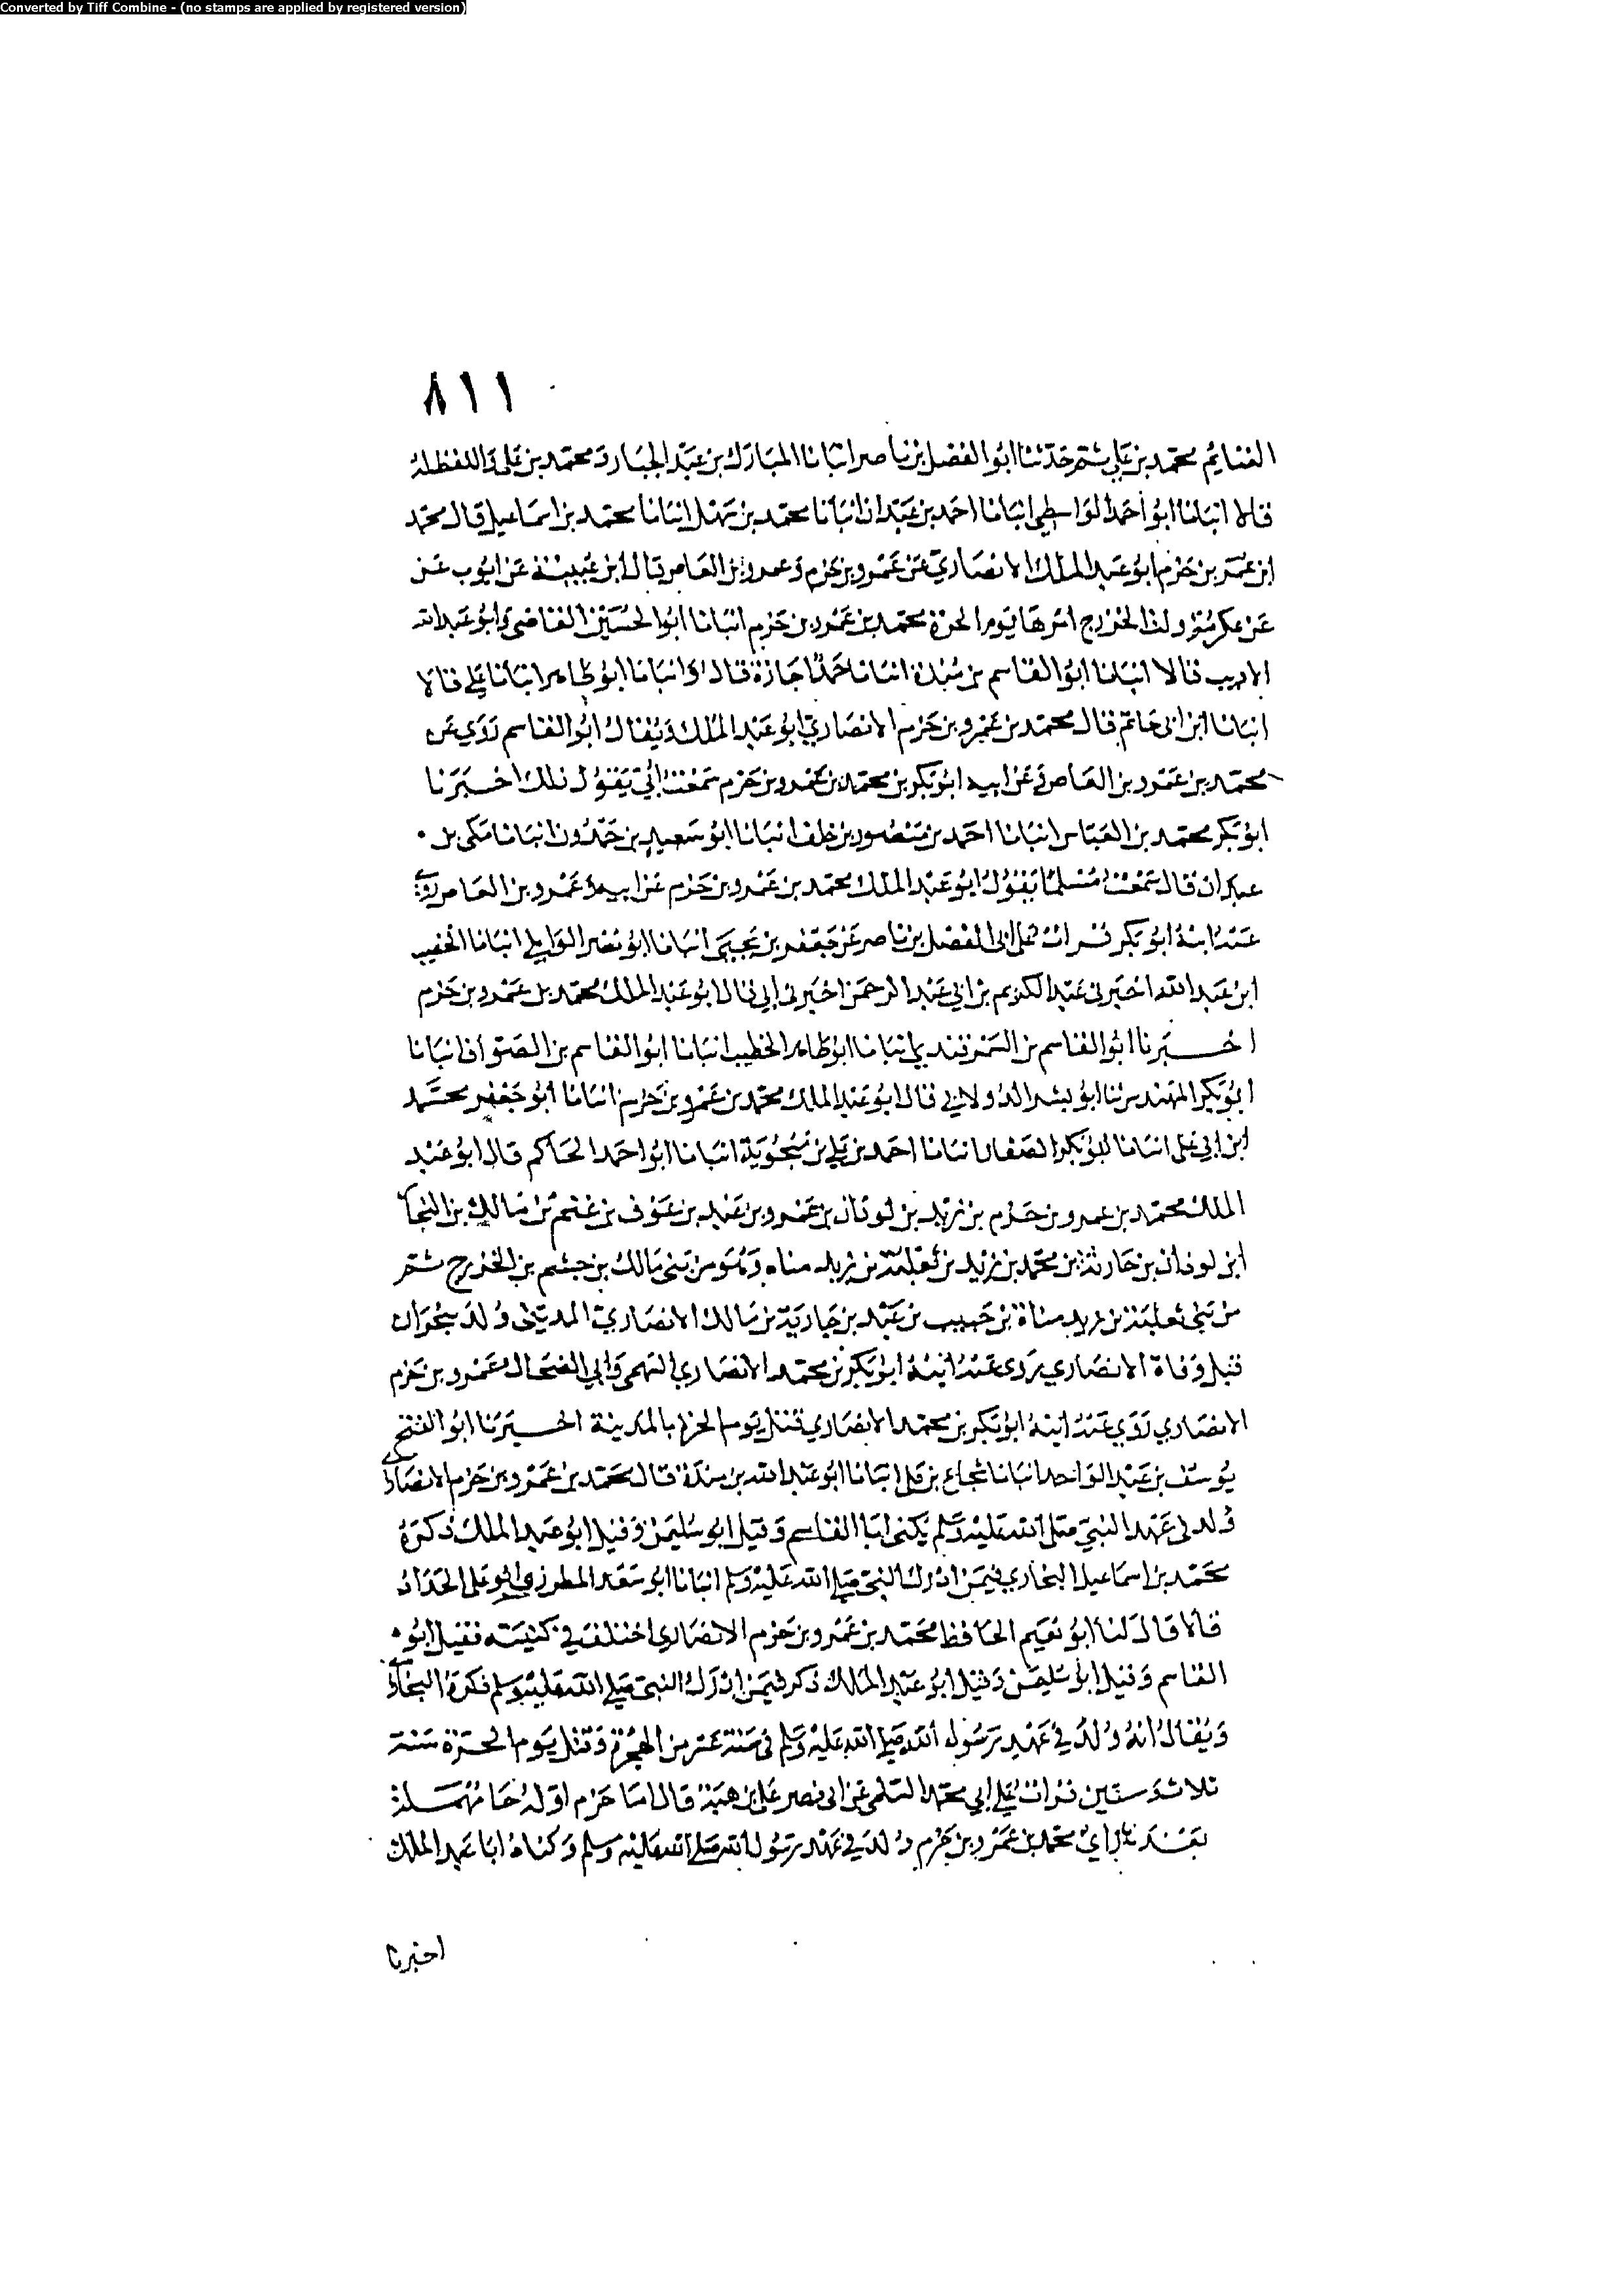 Converted by Tiff Combine - (no stamps are applied by registered version)
٨١١
الغنايم محمد بن علي ثم حدثنا ابو الفضل بن ناصر انبانا المبارك بن عبد الجبار ومحمد بن علي واللفظ له
قالا انبانا ابو احمد الواسطي انبانا احمد بن عبدان انبانا محمد بن سهل انبانا محمد بن اسماعيل قال محمد
ابن عمر بن حزم ابو عبد الملك الانصاري عن عمرو بن حزم وعمرو بن العاص قال ابن عيينة عن ايوب عن
عن عكرمة ولد الخزرج امرها يوم الحرة محمد بن عمرو بن حزم انبانا ابو الحسين القاضي وابو عبد الله
الاديب قالا انبانا ابو القاسم بن مندة انبانا حمد اجازة قال وانبانا ابو طاهر انبانا علي قالا
انبانا ابن ابي حاتم قال محمد بن عمرو بن حزم الانصاري ابو عبد الملك ويقال ابو القاسم روى عن
محمد بن عمرو بن العاص وعن ابيه ابو بكر بن محمد بن عمرو بن حزم سمعت ابي يقول ذلك اخبرنا
ابو بكر محمد بن العباس انبانا احمد بن منصور بن خلف انبانا ابو سعيد بن حمدون انبانا مكي بن
عبدان قال سمعت مسلما يقول ابو عبد الملك محمد بن عمرو بن حزم عن ابيه وعمرو بن العاص روى
عنه ابنه ابو بكر قرات على ابي الفضل بن ناصر عن جعفر بن يحيى انبانا ابو نصر الوايلي انبانا الخصيب
ابن عبد الله اخبرني عبد الكريم بن ابي عبد الرحمن اخبرني ابي قال ابو عبد الملك محمد بن عمرو بن حزم
اخبرنا ابو القاسم بن السمرقندي انبانا ابو طاهر الخطيب انبانا ابو القاسم بن الصواف انبانا
ابو بكر المهندس ثنا ابو بشر الدولابي قال ابو عبد الملك محمد بن عمرو بن حزم انبانا ابو جعفر محمد
ابن ابي علي انبانا ابو بكر الصفار انبانا احمد بن علي بن منجوية انبانا ابو احمد الحاكم قال ابو عبد
الملك محمد بن عمرو بن حزم بن زيد بن لوذان بن عمرو بن عبد بن عوف بن غنم بن مالك بن النجار
ابن لوذان بن حارثة بن محمد بن زيد بن ثعلبة بن زيد مناه وهو من بني مالك بن جشم بن الخزرج ثم
من بني ثعلبة بن زيد مناة بن حبيب بن عبد بن حارثة بن مالك الانصاري المديني ولد بنجران
قبل وفاة الانصاري روى عنه ابنه ابو بكر بن محمد الانصاري السهمي وابي الضحاك عمرو بن حزم
الانصاري روى عنه ابنه ابو بكر بن محمد الانصاري قتل يوم الحرة بالمدينة اخبرنا ابو الفتح
يوسف بن عبد الواحد انبانا شجاع بن علي انبانا ابو عبد الله بن مندة قال محمد بن عمرو بن حزم الانصاري
ولد في عهد النبي صلى الله عليه وسلم يكنى ابا القاسم وقيل ابو سليمن وقيل ابو عبد الملك ذكره
محمد بن اسماعيل البخاري فيمن ادرك النبي صلى الله عليه وسلم انبانا ابو سعد المطرزي وابو علي الحداد
قالا قال لنا ابو نعيم الحافظ محمد بن عمرو بن حزم الانصاري اختلف في كنيته فقيل ابو
القاسم وقيل ابو سليمن وقيل ابو عبد الملك ذكر فيمن ادرك النبي صلى الله عليه وسلم ذكره البخاري
ويقال انه ولد في عهد رسول الله صلى الله عليه وسلم في سنة عشر من الهجرة وقتل يوم الحرة سنة
ثلاث وستين قرات على ابي محمد السلمي عن ابي نصر علي بن هبة قال اما حزم اوله حا مهملة
بعدها زاي محمد بن عمرو بن حزم ولد في عهد رسول الله صلى الله عليه وسلم وكناه ابا عبد الملك
اخبرنا